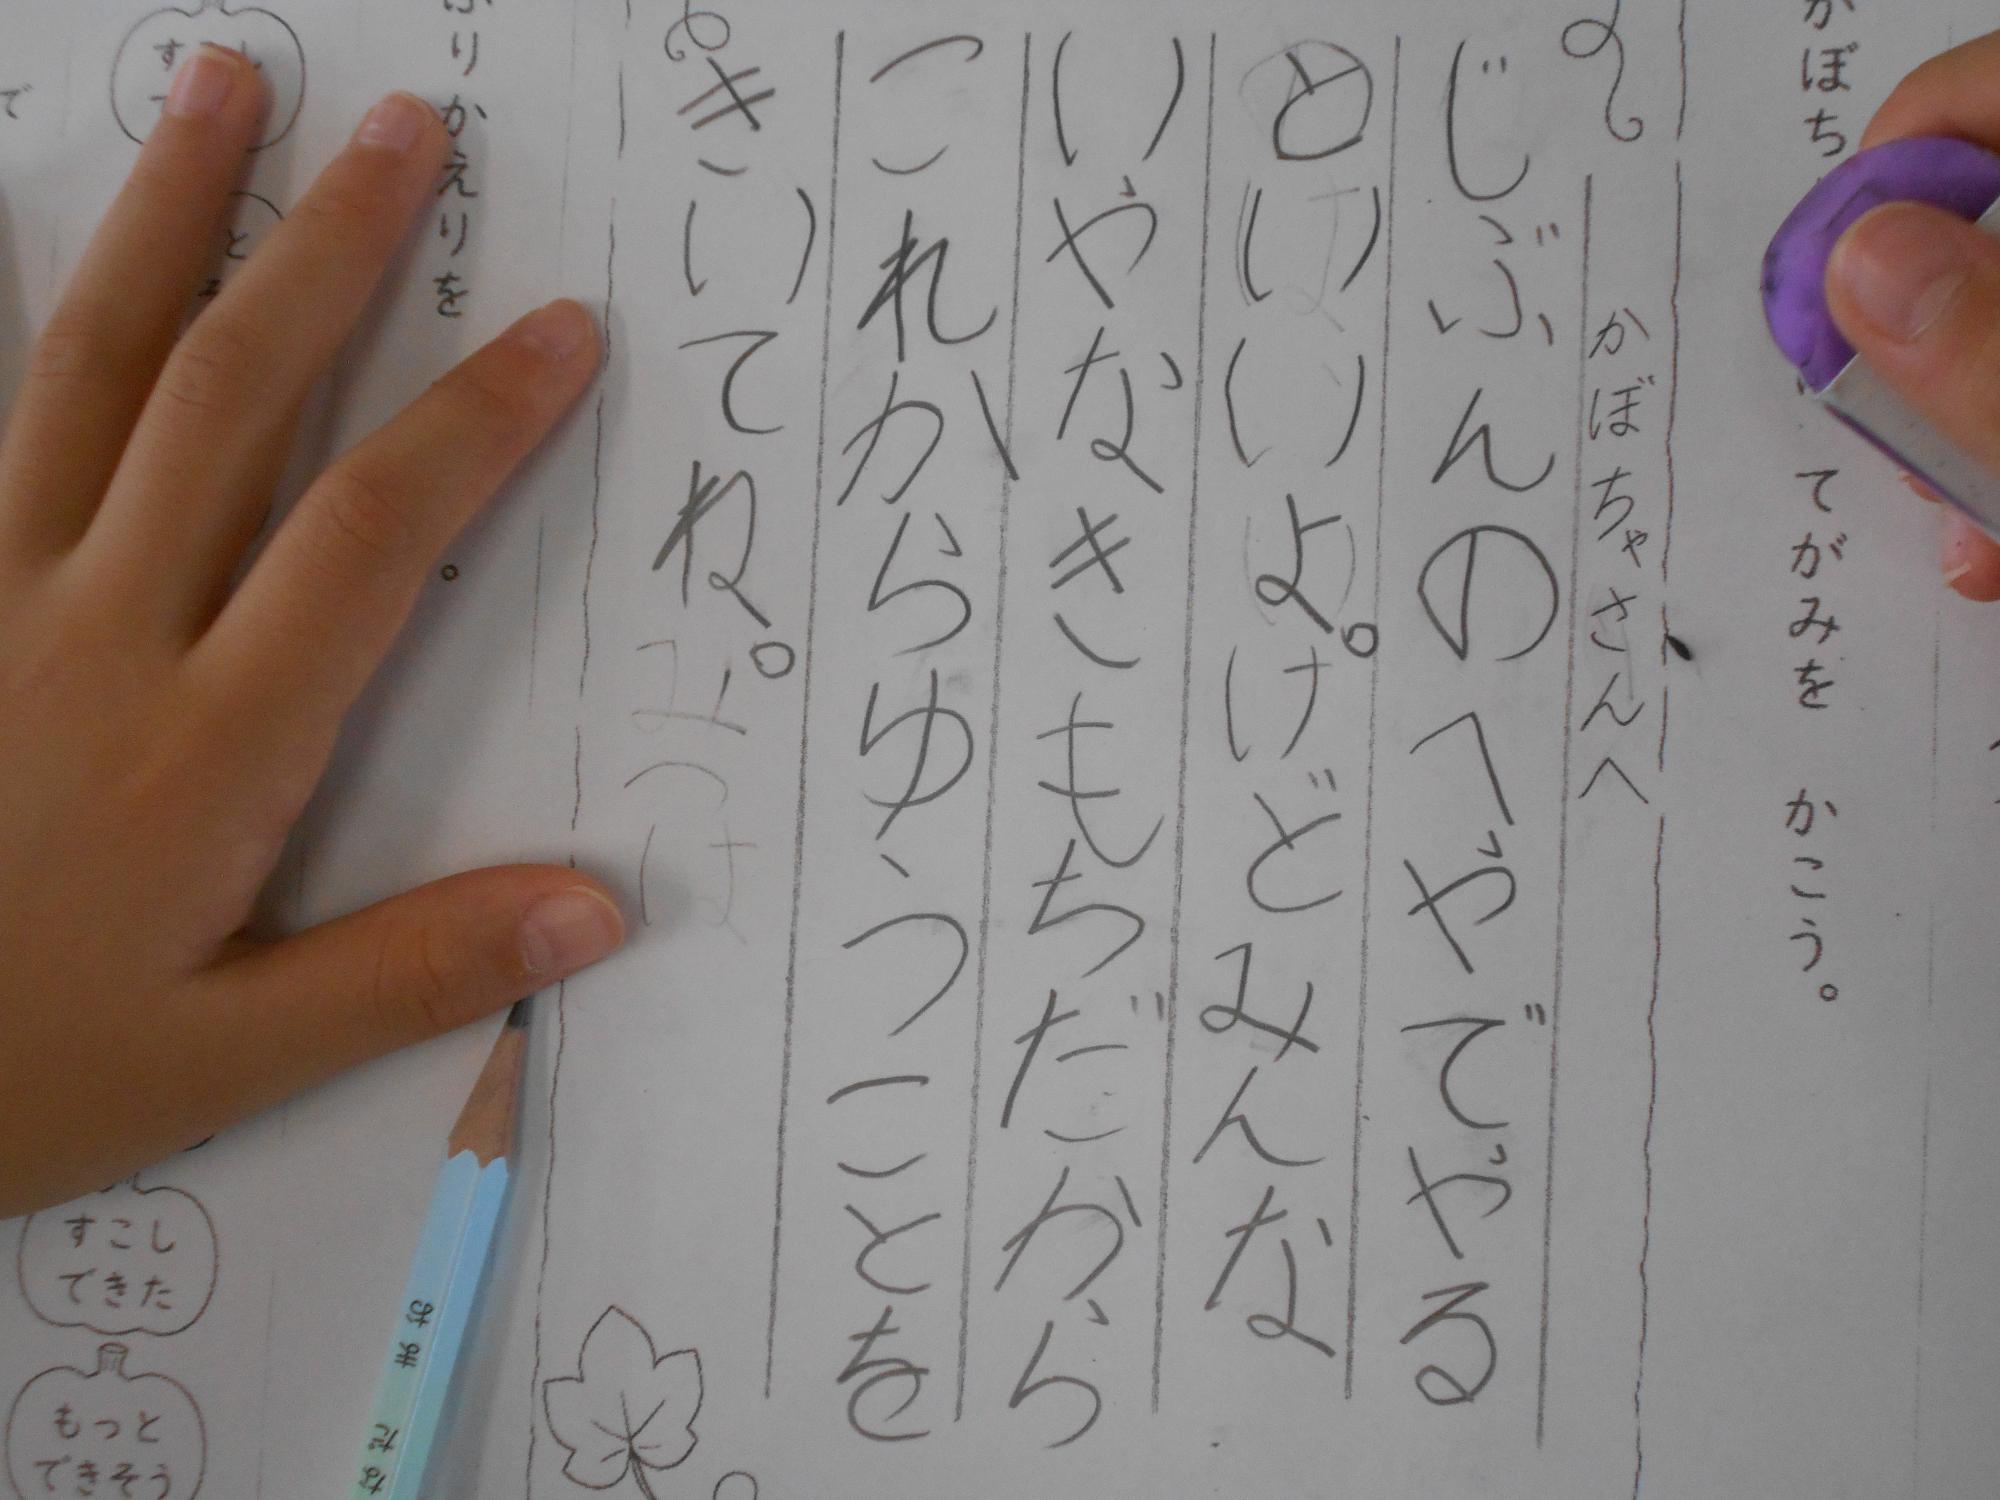 てがみを かこう。
かぼちゃさんへ
じぶんのへやでやる
といいよ。けどみんな
いやなきもちだから
これからゆうことを
きいてね。
ふりかえりを
すこし
できた
もっと
できそう